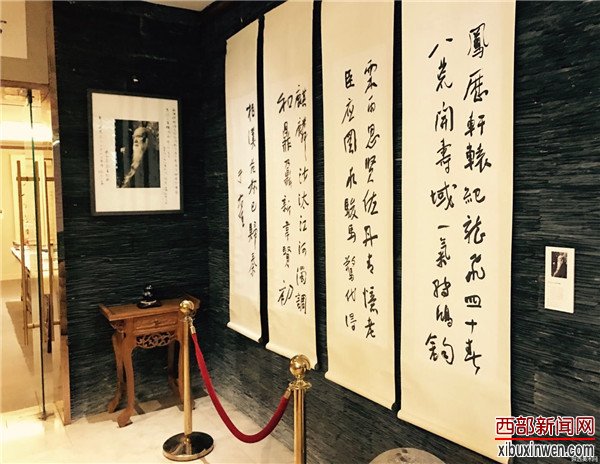 鳳歷軒轅紀龍飛四十春
八荒開壽域一氣轉鴻鈞
霖雨思賢佐丹青憶老
臣應圖求駿馬驚代得
麒麟沙汰江河濁調
和鼎鼐新韋賢初
相漢范叔已歸秦
西部新闻网
xibuxinwen.com